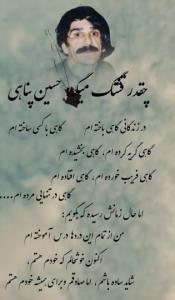 چقدر قشنگ میگه حسین پناهی
در زندگانی گاهی باخته ام گاهی با کسی ساخته ام
گاهی گریه کرده ام، گاهی بخشیده ام
گاهی فریب خورده ام، گاهی افتاده ام
گاهی در تنهایی مرده ام....
اما حال زمانش رسیده که بگویم:
من از تمام این دردها درس آموخته ام
اکنون خوشحالم که خودم هستم،
شاید ساده باشم، اما صادقم و برای همیشه خودم هستم